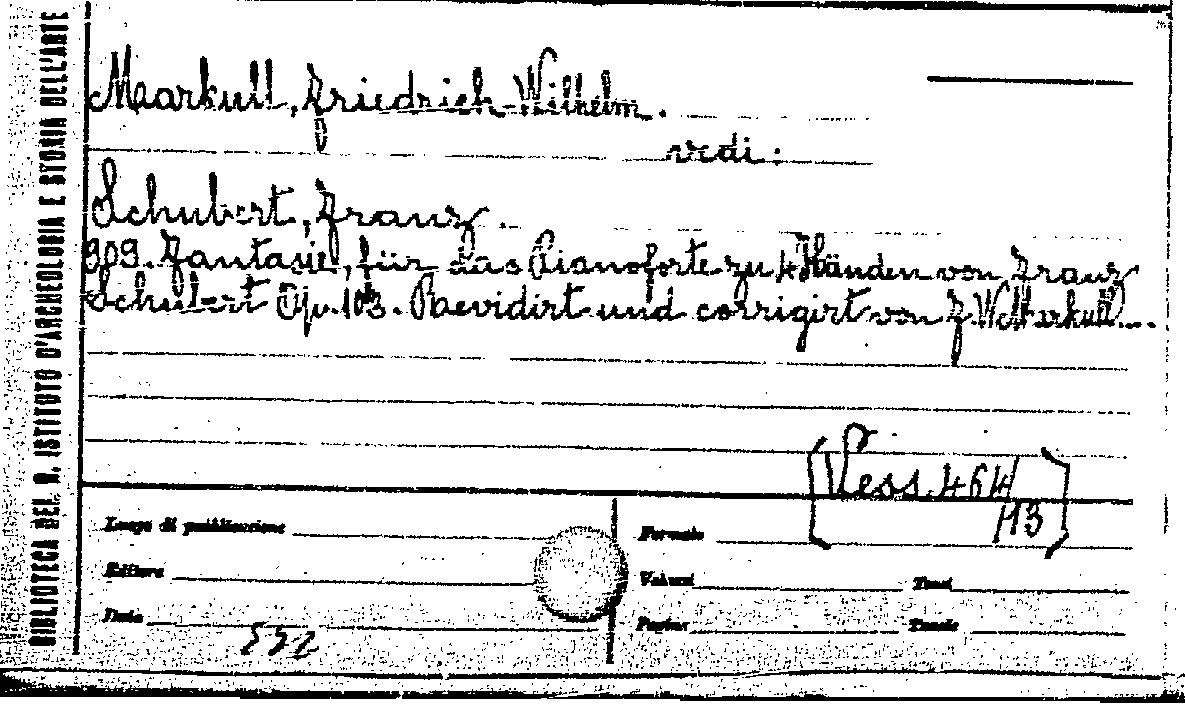 BIBLIOTECA DEL R. ISTITUTO D'ARCHEOLOGIA E STORIA DELL'ARTE
Markull, Friedrich Wilhelm.
vedi:
Schubert, Franz.
909. Fantasie, für das Pianoforte zu 4 Händen von Franz
Schubert Op. 103. Revidirt und corrigirt von F. W. Markull...
[Vess. 464/
113]
Luogo di pubblicazione
Formato
Editore
Volumi
Tomi
Data
Pagine
Tavole
532